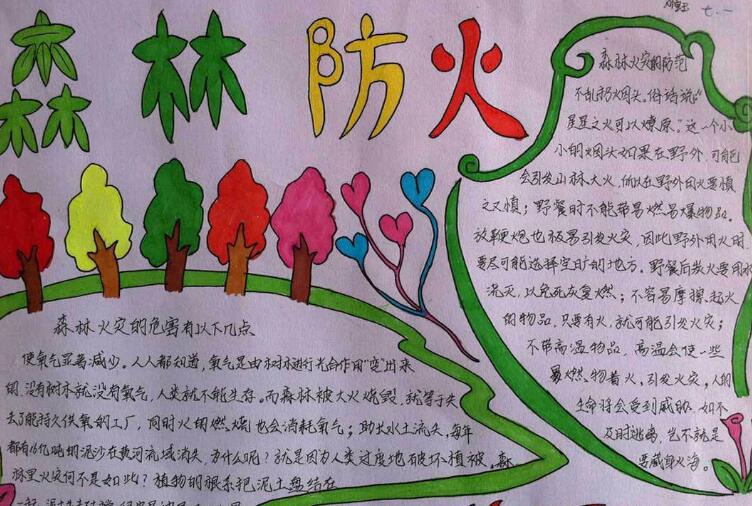 森林防火
七.一
森林火灾的防范
不乱扔烟头。俗话说“
星星之火可以燎原。”这一个小
小的烟头如果在野外，可能
会引发山林大火，所以在野外用火要慎
之又慎；野餐时不能带易燃易爆物品。
放鞭炮也极易引发火灾，因此野外用火时
要尽可能选择空旷的地方。野餐后熄火要用水
浇灭，以免死灰复燃；不容易摩擦起火
的物品，只要有火，就可能引发火灾；
不带高温物品，高温会使一些
易燃物着火，引发火灾，人的
生命将会受到威胁，如不
及时逃离，岂不就是
葬身火海。
森林火灾的危害有以下几点
使氧气显著减少。人人都知道，氧气是由树木进行光合作用“变”出来
的，没有树木就没有氧气，人类就不能生存。而森林被大火烧毁，就等于失
去了能持久供氧的工厂，同时火的燃烧也会消耗氧气；助长水土流失，每年
都有16亿吨的泥沙在黄河流域消失，为什么呢？就是因为人类过度地破坏植被，森
林里火灾何不是如此？植物的根系把泥土盘结在
一起，